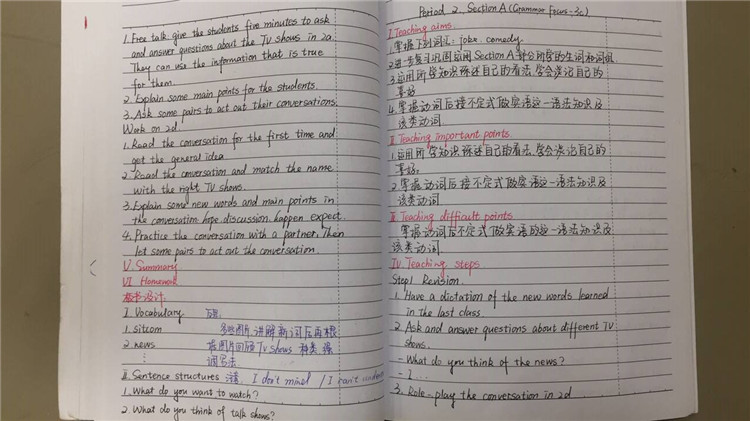 1. Free talk: give the students five minutes to ask
and answer questions about the TV shows in 2a.
They can use the information that is true
for them.
2. Explain some main points for the students.
3. Ask some pairs to act out their conversations.
Work on 2d
1. Read the conversation for the first time and
get the general idea
2. Read the conversation and match the name
with the right TV shows.
3. Explain some new words and main points in
the conversation. hope, discussion, happen, expect.
4. Practice the conversation with a partner. Then
let some pairs to act out the conversation.
V. Summary
VI Homework
板书设计:
I Vocabulary
1. sitcom 图片讲解新词后再根
2. news 据图片回答 TV shows 种类 强
⋮ 调写法
II Sentence structures I don't mind / I can't
1. What do you want to watch?
2. What do you think of talk shows?
Period 2. Section A (Grammar Focus-3c)
I Teaching aims
1. 掌握下列词汇: joke, comedy
2. 进一步复习巩固应用 Section A 部分所学的生词和词组
3. 应用所学知识陈述自己的看法, 学会谈论自己的
喜好
4. 掌握动词后接不定式做宾语这一语法知识及
该类动词
II Teaching important points
1. 应用所学知识陈述自己的看法, 学会谈论自己的
喜好.
2. 掌握动词后接不定式做宾语这一语法知识及
该类动词
III Teaching difficult points
掌握动词后不定式做宾语的这一语法知识及
该类动词.
IV Teaching steps
Step 1 Revision.
1. Have a dictation of the new words learned
in the last class.
2. Ask and answer questions about different TV
shows.
- What do you think of the news?
- I...
3. Role-play the conversation in 2d